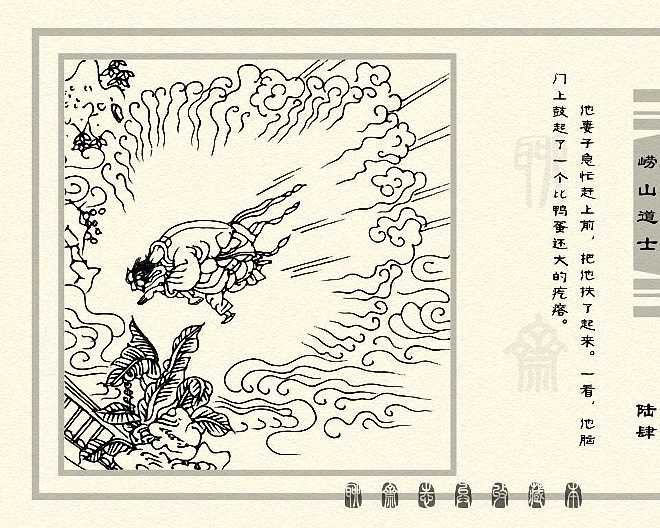 崂山道士
他妻子急忙赶上前，把他扶了起来。一看，他脑
门上鼓起了一个比鸭蛋还大的疙瘩。
陆肆